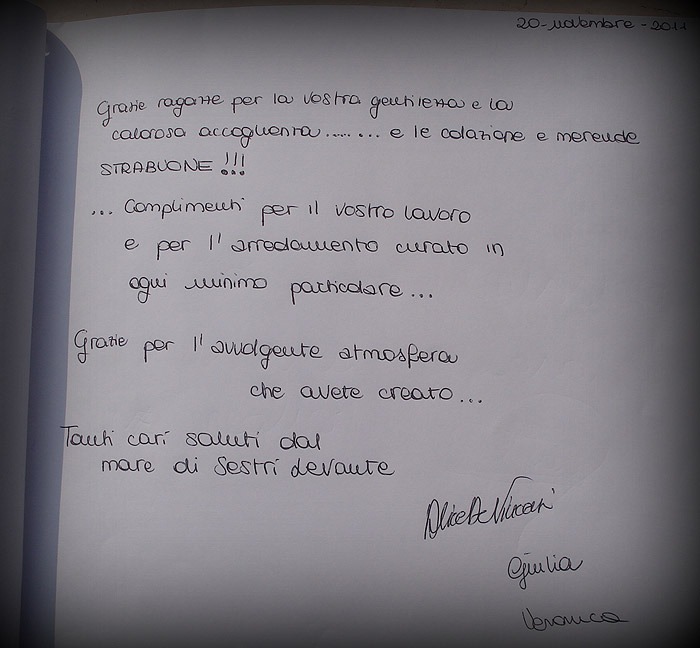 20-novembre-2011
Grazie ragazze per la vostra gentilezza e la
calorosa accoglienza........ e le colazione e merende
STRABUONE !!!
... Complimenti per il vostro lavoro
e per l'arredamento curato in
ogni minimo particolare...
Grazie per l'avvolgente atmosfera
che avete creato...
Tanti cari saluti dal
mare di Sestri Levante
Alice
Giulia
Veronica